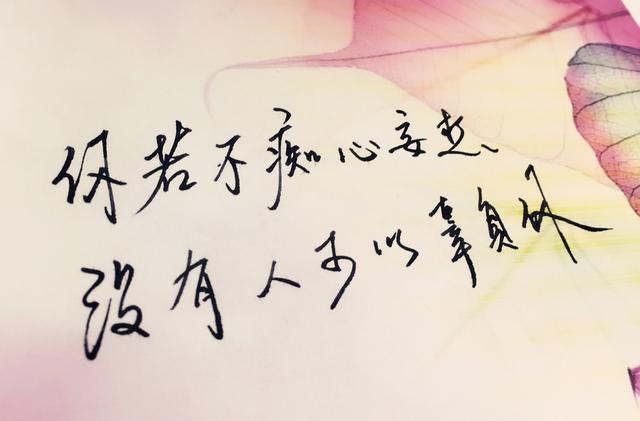 你若不痴心妄想、
没有人可以辜负你